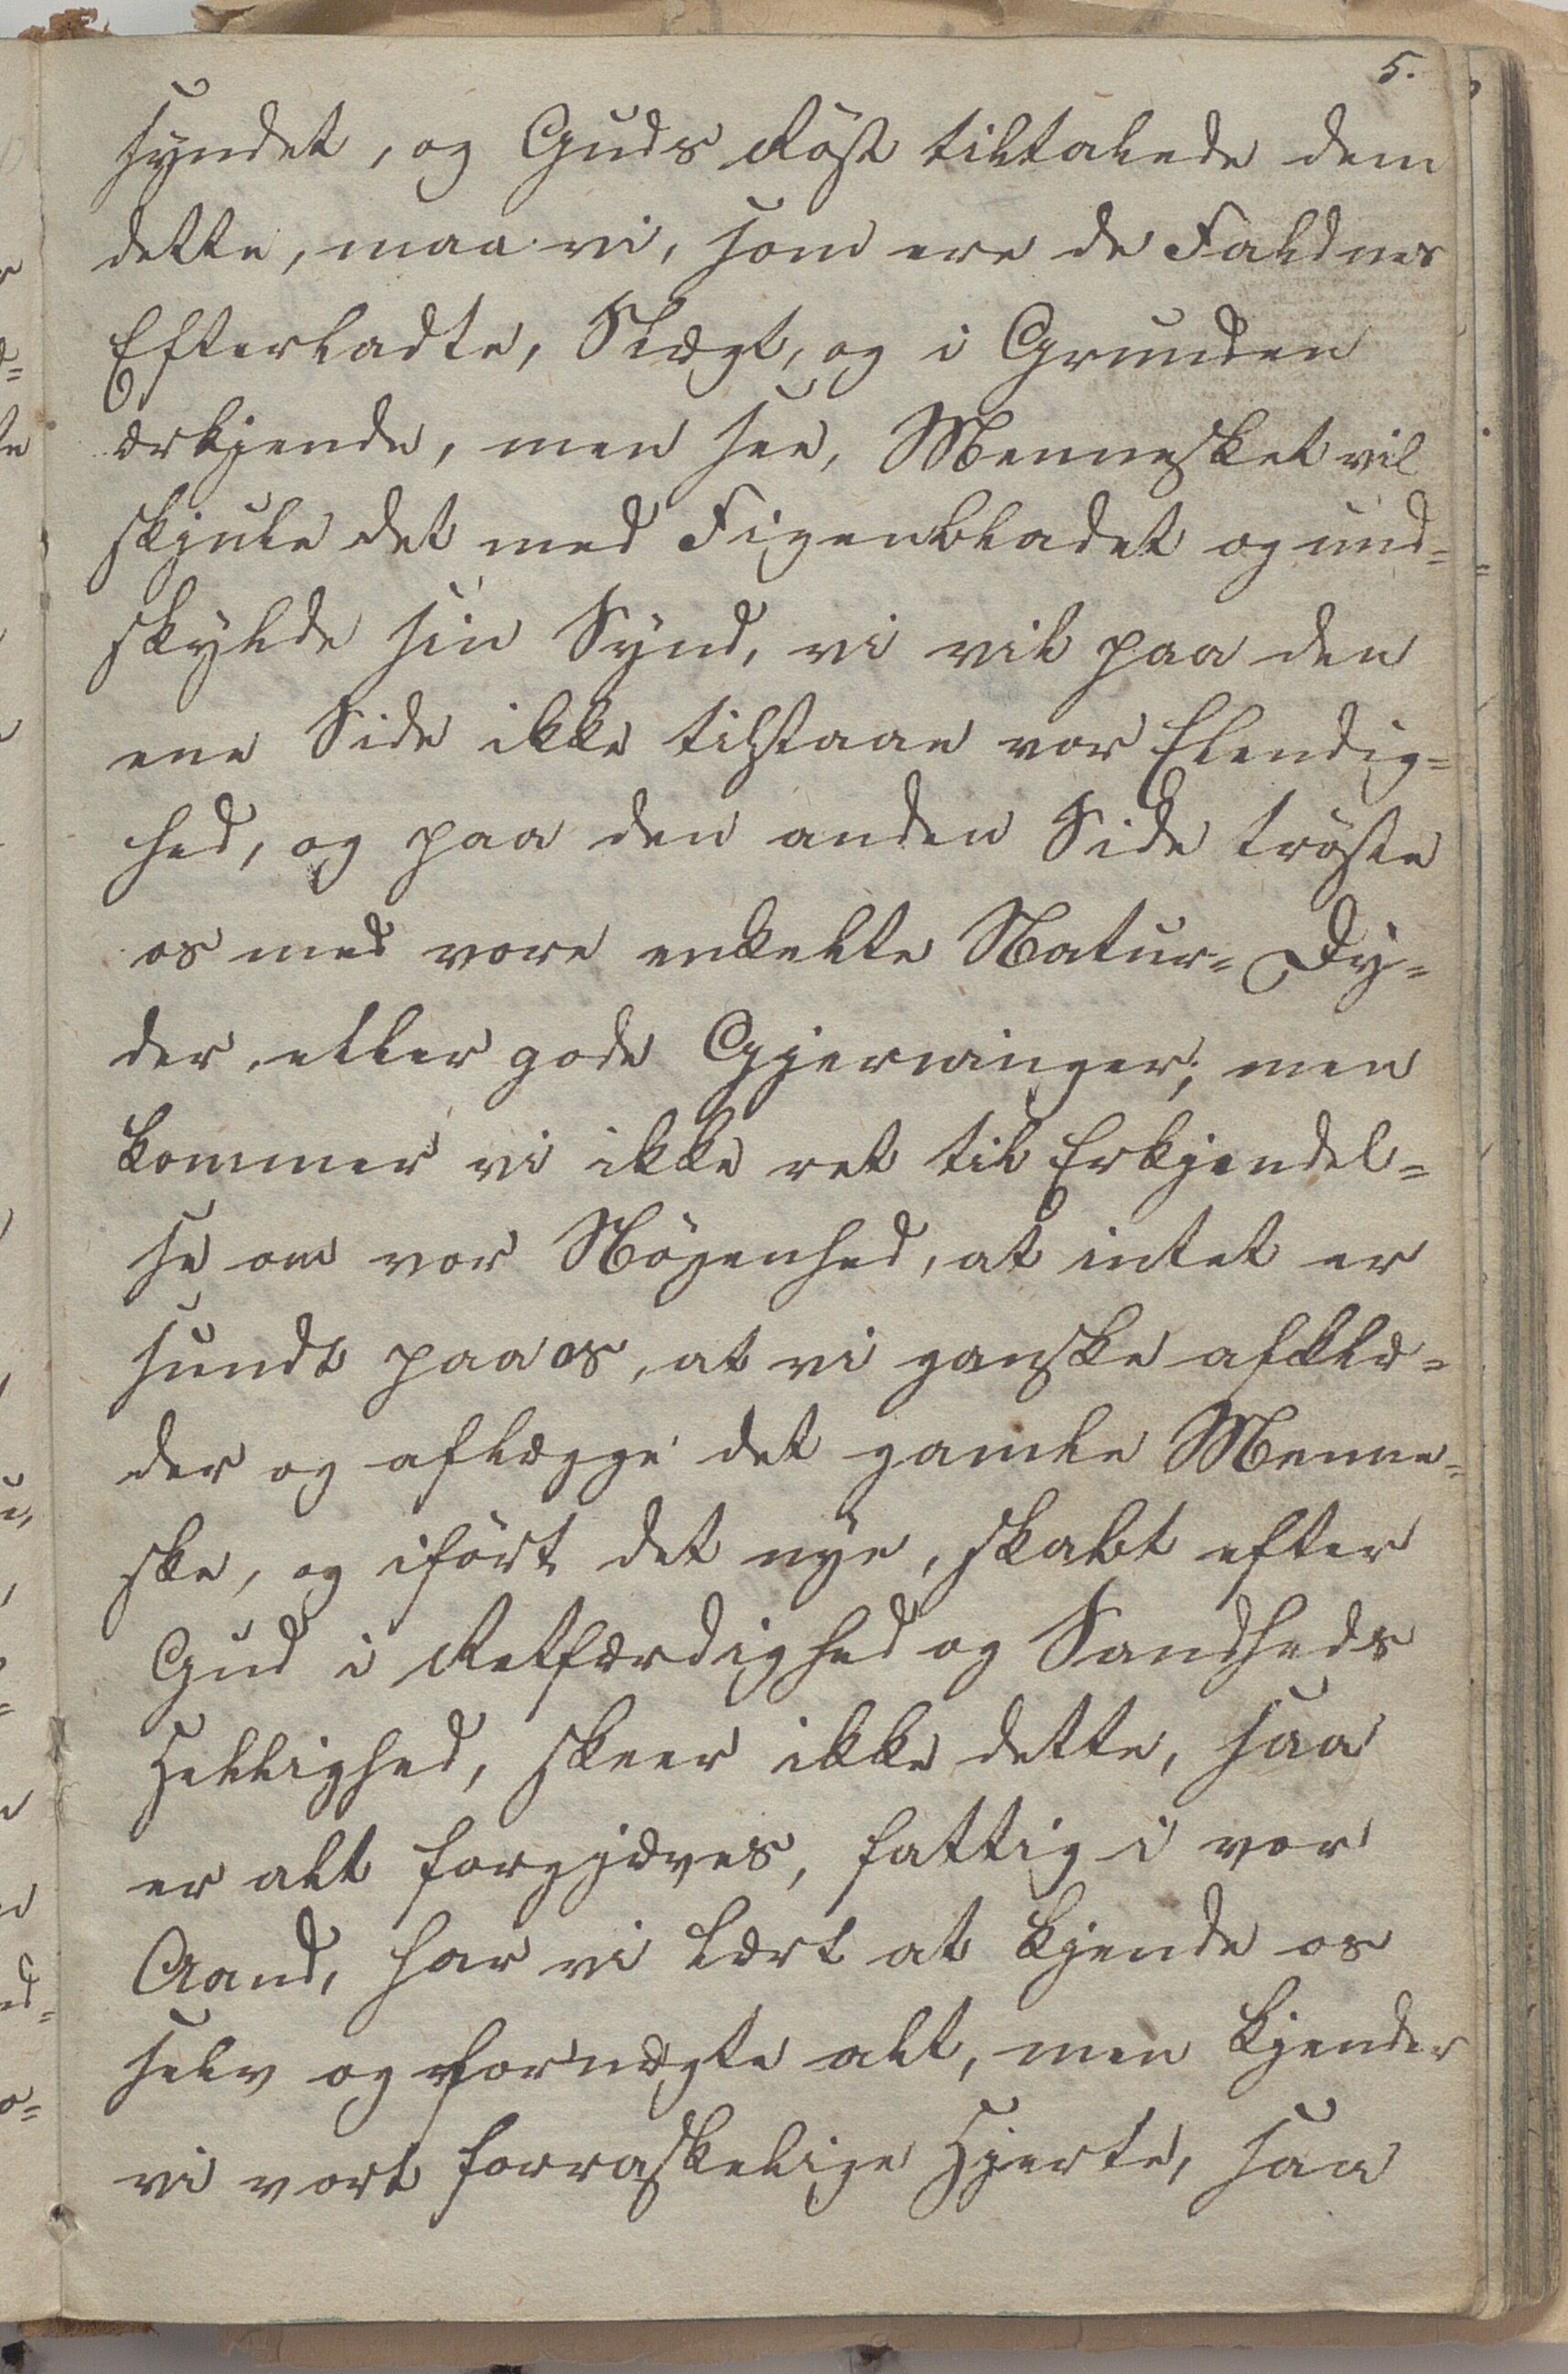 5.
syndet, og Guds Röst tiltalede dem
dette, maa vi, som ere de Faldnes
Efterladte, Slægt, og i Grunden
ærkjende, men see, Mennesket vil
skjule det med Figenbladet og und=
skylde sin Synd, vi vil paa den
ene Side ikke tilstaae vor Elendig=
hed, og paa den anden Side tröste
os med vore enkelte Natur= Dy=
der, eller gode Gjerninger; men
kommer vi ikke ret til Erkjendel=
se om vor Nögenhed, at intet er
sundt paa os, at vi ganske afklæ=
der og aflægge det gamle Menne=
ske, og iført det nye, skabt efter
Gud i Retfærdighed og Sandheds
Hellighed, skeer ikke dette, saa
er alt forgjæves, fattig i vor
Aand, har vi lært at kjende os
selv og fornægte alt, men kjender
vi vort forraskelige Hjerte, saa